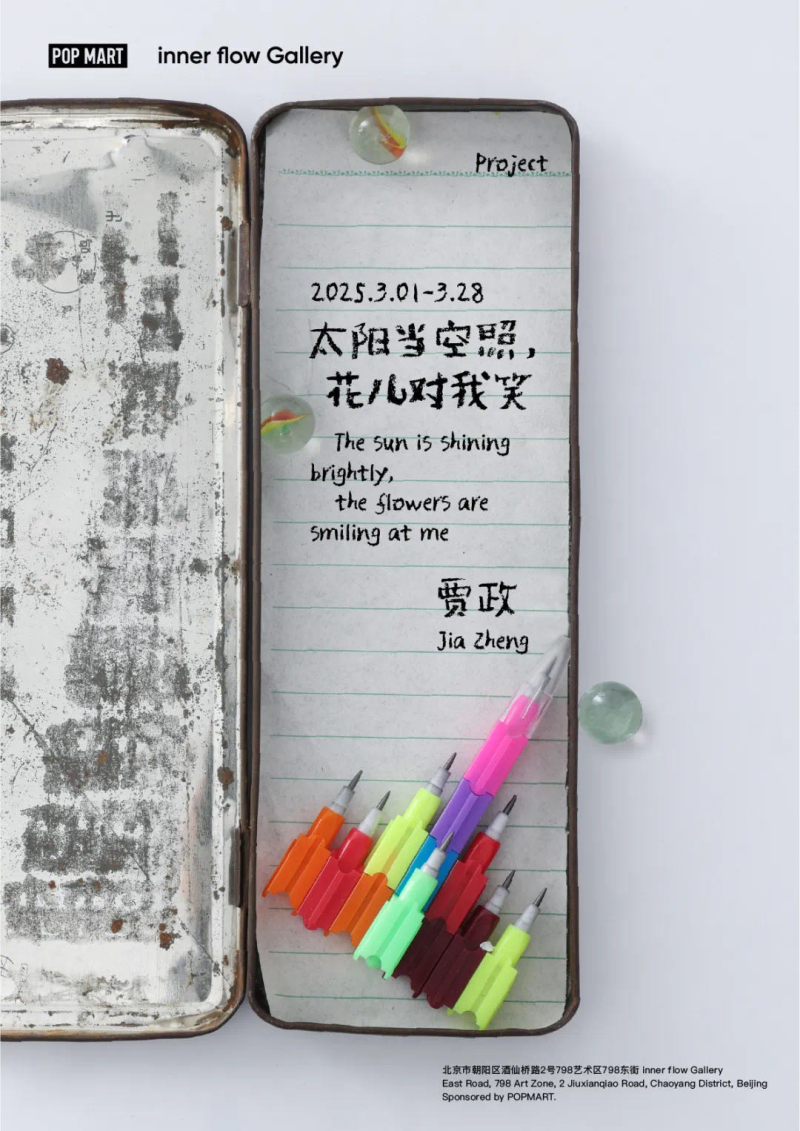 POP MART
inner flow Gallery
Project
2025.3.01-3.28
太阳当空照,
花儿对我笑
The sun is shining
brightly,
the flowers are
smiling at me
贾政
Jia Zheng
北京市朝阳区酒仙桥路2号798艺术区798东街 inner flow Gallery
East Road, 798 Art Zone, 2 Jiuxianqiao Road, Chaoyang District, Beijing
Sponsored by POPMART.